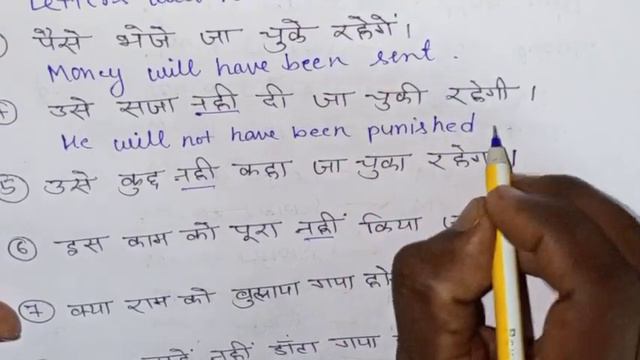 पैसे भेजे जा चुके रहेगें।
Money will have been sent.
उसे सजा नही दी जा चुकी रहेगी।
He will not have been punished
⑤ उसे कुछ नही कहा जा चुका
⑥ इस काम को पूरा नहीं किया
⑦ क्या राम को बुलाया गया
नहीं डांटा गया